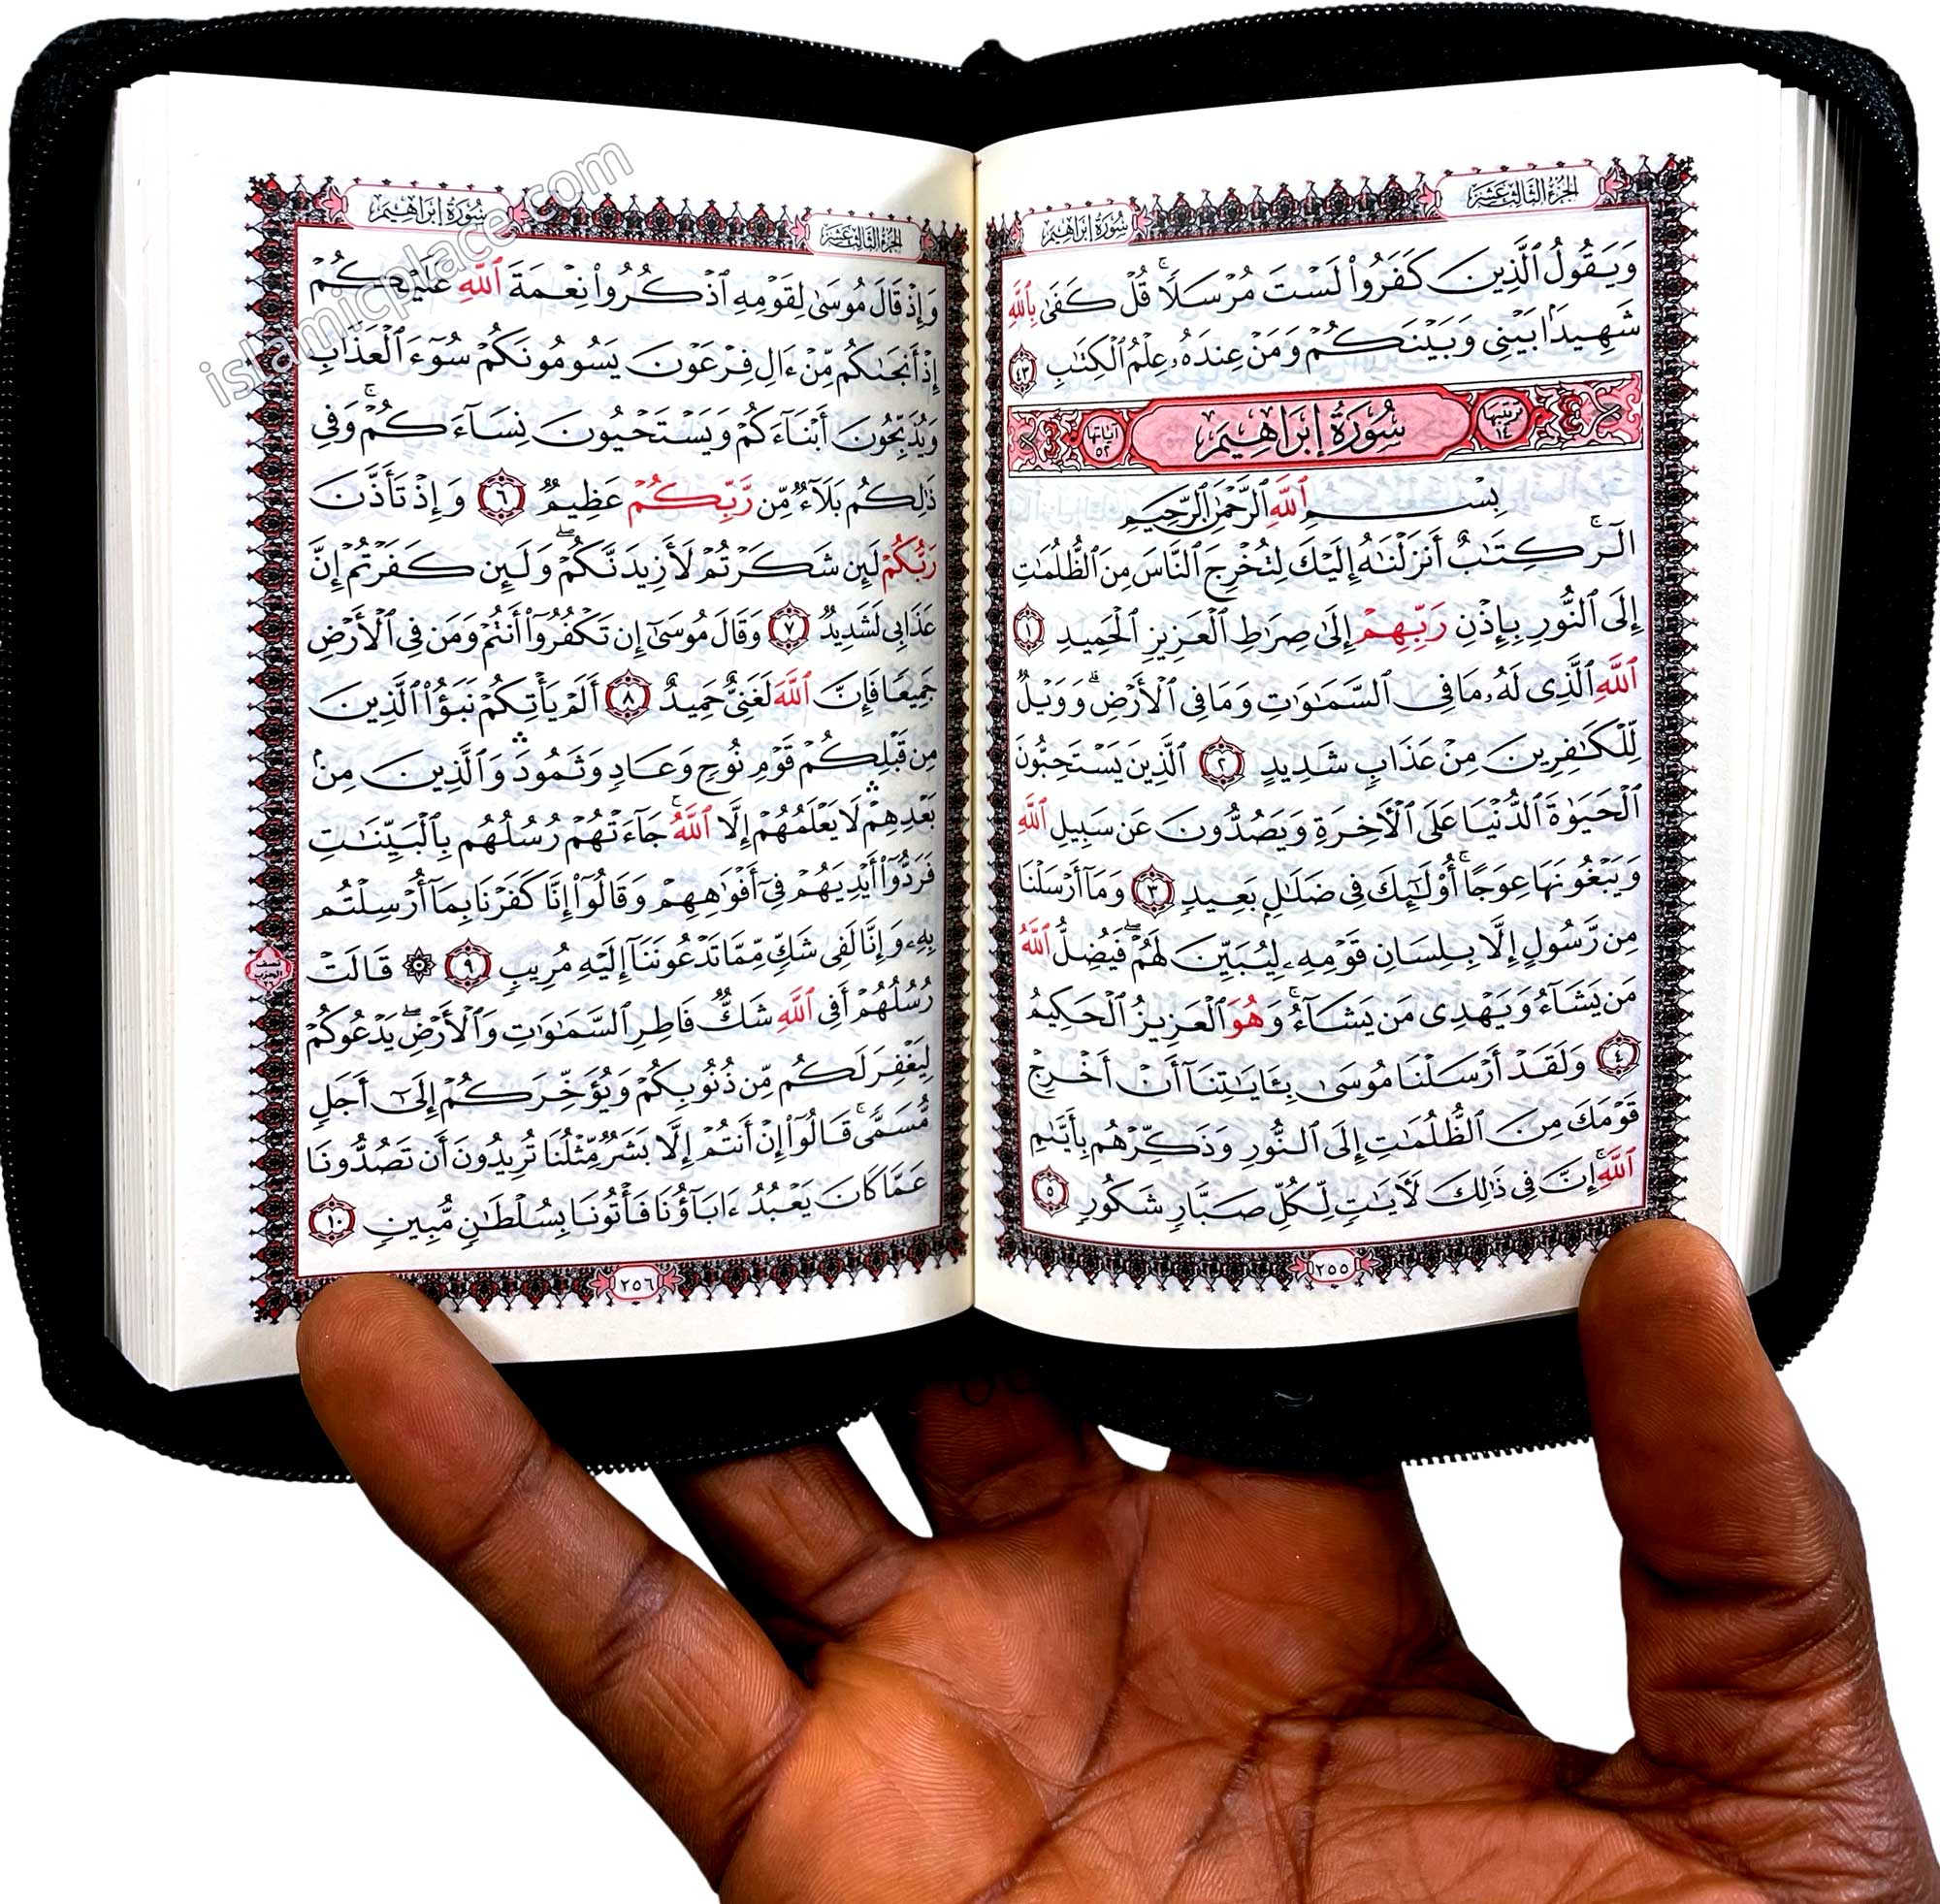 الجزء الثالث عشر
سورة إبراهيم
وَيَقُولُ ٱلَّذِينَ كَفَرُوا۟ لَسْتَ مُرْسَلًا ۚ قُلْ كَفَىٰ بِٱللَّهِ
شَهِيدًۢا بَيْنِى وَبَيْنَكُمْ وَمَنْ عِندَهُۥ عِلْمُ ٱلْكِتَٰبِ ٤٣
ترتيبها ١٤ سُورَةُ إِبْرَاهِيمَ آياتها ٥٢
بِسْمِ ٱللَّهِ ٱلرَّحْمَٰنِ ٱلرَّحِيمِ
الٓر ۚ كِتَٰبٌ أَنزَلْنَٰهُ إِلَيْكَ لِتُخْرِجَ ٱلنَّاسَ مِنَ ٱلظُّلُمَٰتِ
إِلَى ٱلنُّورِ بِإِذْنِ رَبِّهِمْ إِلَىٰ صِرَٰطِ ٱلْعَزِيزِ ٱلْحَمِيدِ ١
ٱللَّهِ ٱلَّذِى لَهُۥ مَا فِى ٱلسَّمَٰوَٰتِ وَمَا فِى ٱلْأَرْضِ ۗ وَوَيْلٌ
لِّلْكَٰفِرِينَ مِنْ عَذَابٍ شَدِيدٍ ٢ ٱلَّذِينَ يَسْتَحِبُّونَ
ٱلْحَيَوٰةَ ٱلدُّنْيَا عَلَى ٱلْءَاخِرَةِ وَيَصُدُّونَ عَن سَبِيلِ ٱللَّهِ
وَيَبْغُونَهَا عِوَجًا ۚ أُو۟لَٰٓئِكَ فِى ضَلَٰلٍۭ بَعِيدٍ ٣ وَمَآ أَرْسَلْنَا
مِن رَّسُولٍ إِلَّا بِلِسَانِ قَوْمِهِۦ لِيُبَيِّنَ لَهُمْ ۖ فَيُضِلُّ ٱللَّهُ
مَن يَشَآءُ وَيَهْدِى مَن يَشَآءُ ۚ وَهُوَ ٱلْعَزِيزُ ٱلْحَكِيمُ
٤ وَلَقَدْ أَرْسَلْنَا مُوسَىٰ بِـَٔايَٰتِنَآ أَنْ أَخْرِجْ
قَوْمَكَ مِنَ ٱلظُّلُمَٰتِ إِلَى ٱلنُّورِ وَذَكِّرْهُم بِأَيَّىٰمِ
ٱللَّهِ ۚ إِنَّ فِى ذَٰلِكَ لَءَايَٰتٍ لِّكُلِّ صَبَّارٍ شَكُورٍ ٥
٢٥٥
الجزء الثالث عشر
سورة إبراهيم
وَإِذْ قَالَ مُوسَىٰ لِقَوْمِهِ ٱذْكُرُوا۟ نِعْمَةَ ٱللَّهِ عَلَيْكُمْ
إِذْ أَنجَىٰكُم مِّنْ ءَالِ فِرْعَوْنَ يَسُومُونَكُمْ سُوٓءَ ٱلْعَذَابِ
وَيُذَبِّحُونَ أَبْنَآءَكُمْ وَيَسْتَحْيُونَ نِسَآءَكُمْ ۚ وَفِى
ذَٰلِكُم بَلَآءٌ مِّن رَّبِّكُمْ عَظِيمٌ ٦ وَإِذْ تَأَذَّنَ
رَبُّكُمْ لَئِن شَكَرْتُمْ لَأَزِيدَنَّكُمْ ۖ وَلَئِن كَفَرْتُمْ إِنَّ
عَذَابِى لَشَدِيدٌ ٧ وَقَالَ مُوسَىٰٓ إِن تَكْفُرُوٓا۟ أَنتُمْ وَمَن فِى ٱلْأَرْضِ
جَمِيعًا فَإِنَّ ٱللَّهَ لَغَنِىٌّ حَمِيدٌ ٨ أَلَمْ يَأْتِكُمْ نَبَؤُا۟ ٱلَّذِينَ
مِن قَبْلِكُمْ قَوْمِ نُوحٍ وَعَادٍ وَثَمُودَ ۛ وَٱلَّذِينَ مِنۢ
بَعْدِهِمْ ۛ لَا يَعْلَمُهُمْ إِلَّا ٱللَّهُ ۚ جَآءَتْهُمْ رُسُلُهُم بِٱلْبَيِّنَٰتِ
فَرَدُّوٓا۟ أَيْدِيَهُمْ فِىٓ أَفْوَٰهِهِمْ وَقَالُوٓا۟ إِنَّا كَفَرْنَا بِمَآ أُرْسِلْتُم
بِهِۦ وَإِنَّا لَفِى شَكٍّ مِّمَّا تَدْعُونَنَآ إِلَيْهِ مُرِيبٍ ٩ ۞ قَالَتْ
نصف الحزب ٢٦
رُسُلُهُمْ أَفِى ٱللَّهِ شَكٌّ فَاطِرِ ٱلسَّمَٰوَٰتِ وَٱلْأَرْضِ ۖ يَدْعُوكُمْ
لِيَغْفِرَ لَكُم مِّن ذُنُوبِكُمْ وَيُؤَخِّرَكُمْ إِلَىٰٓ أَجَلٍ
مُّسَمًّى ۚ قَالُوٓا۟ إِنْ أَنتُمْ إِلَّا بَشَرٌ مِّثْلُنَا تُرِيدُونَ أَن تَصُدُّونَا
عَمَّا كَانَ يَعْبُدُ ءَابَآؤُنَا فَأْتُونَا بِسُلْطَٰنٍ مُّبِينٍ ١٠
٢٥٦
islamicplace.com